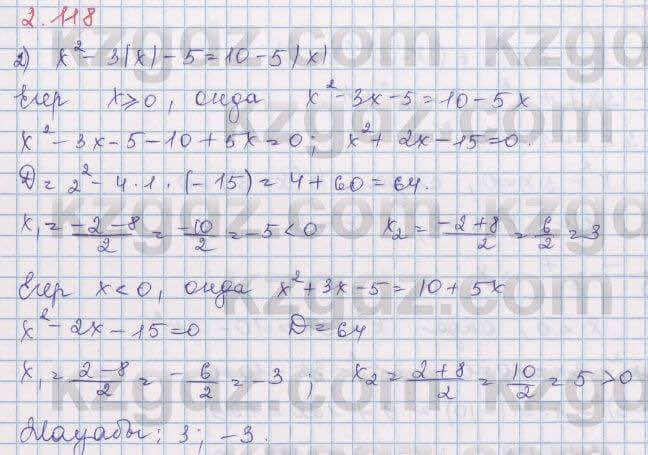 2.118
2) x² - 3|x| - 5 = 10 - 5|x|
Егер x ≥ 0, онда x² - 3x - 5 = 10 - 5x
x² - 3x - 5 - 10 + 5x = 0; x² + 2x - 15 = 0.
D = 2² - 4·1·(-15) = 4 + 60 = 64.
x₁ = (-2-8)/2 = -10/2 = -5 < 0 x₂ = (-2+8)/2 = 6/2 = 3
Егер x < 0, онда x² + 3x - 5 = 10 + 5x
x² - 2x - 15 = 0 D = 64
x₁ = (2-8)/2 = -6/2 = -3 ; x₂ = (2+8)/2 = 10/2 = 5 > 0
Жауабы: 3; -3.
kzgdz.com